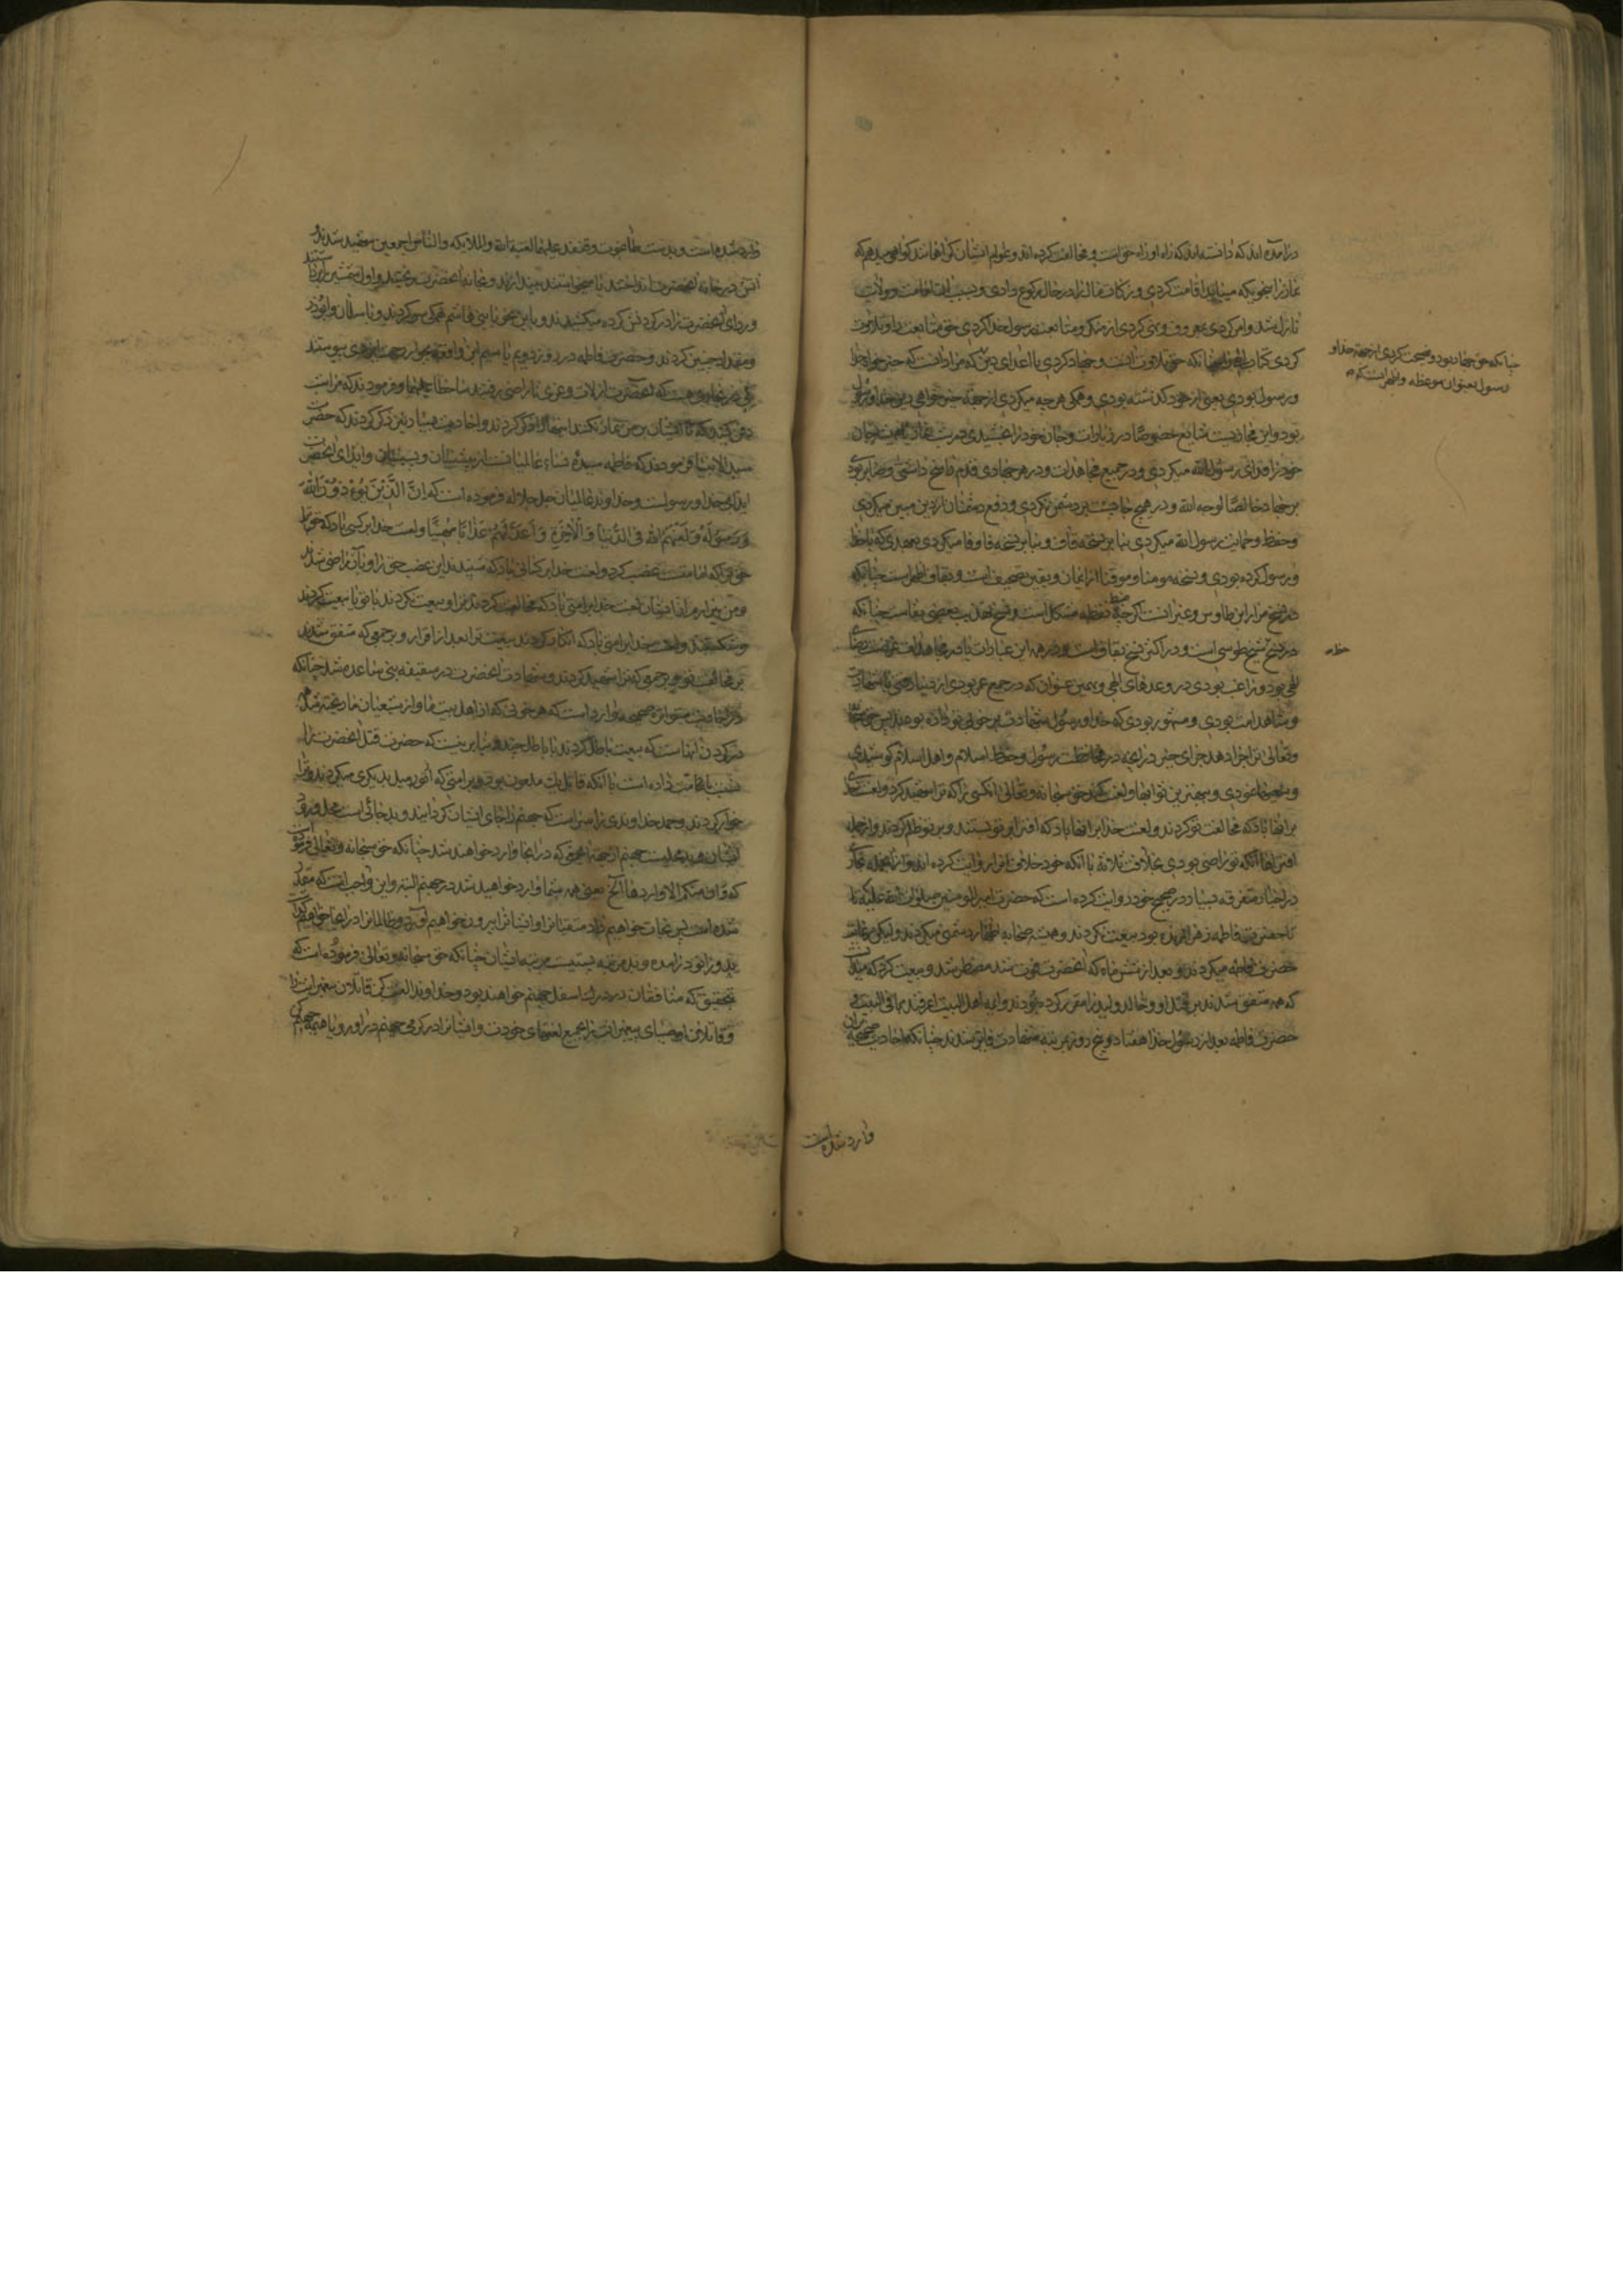 درآمده اند که دانسته اند که راه او راه حق است و مخالفت کرده اند و عوام ایشان گمراهانند گواهی میدهم که
نماز را بنحوی که میباید اقامت کردی و زکات مال را در حال رکوع دادی و بسبب آن امامت و ولایت
نازل شد و امر کردی بمعروف و نهی کردی از منکر و متابعت رسول خدا کردی حق متابعت را و تلاوت
کردی کتاب الهی را چنانکه حق تلاوت است و جهاد کردی با اعدای دین که مراد آنست که خیر خواه خدا
و رسول بودی یعنی از خود گذشته بودی و همگی هر چه میکردی از جهة خیر خواهی دین خدا و رسول
بود و این مجاز نیست شایع خصوصا در زیارات و جان خود را بخشیدی در شب غار یا همیشه جان
خود را فدای رسول الله میکردی و در جمیع مجاهدات و در هر جهادی قدم راسخ داشتی و صابر بودی
بر جهاد خالصا لوجه الله و در هیچ جا پشت بر دشمن نکردی و دفع دشمنان از دین مبین میکردی
و حفظ و حمایت رسول الله میکردی بنا بر نسخه قاف و بنا بر نسخه فا وفا میکردی بعهدی که با خدا
و رسول کرده بودی و نسخه مومنا و موقنا از ایمان و یقین تصحیف است و بقاف اظهر است چنانکه
در نسخ مزار ابن طاوس و غیر آنست اگر چه نقطه مشکل است و نسخ تهذیب بعضی بفاست چنانکه
در نسخ شیخ طوسی است و در اکثر نسخ بقاف است و در همه این عبادات یا در مجاهدات غرضت رضای
الهی بود و راغب بودی در وعدهای الهی و بهمین عنوان که در جمیع عمر بودی از دنیا رفتی با شهادت
و شاهد امت بودی و مشهور بودی که خدا و رسول شهادت بر خوبی تو داده بودند پس حق سبحانه
و تعالی ترا جزا دهد جزای خیر در آنچه در محافظت رسول و حفظ اسلام و اهل اسلام کوشیدی
و لعنت کند حق سبحانه و تعالی آنکسی را که ترا شهید کرد و لعنت خدا
بر آنها باد که مخالفت تو کردند و لعنت خدا بر آنها باد که افترا بر تو بستند و بر تو ظلم کردند و از جمله
افتراها آنکه تو راضی بودی بخلافت ثلاثه با آنکه خود خلاف آنرا روایت کرده اند و از آنجمله بخاری
در اخبار متفرقه بسیار در صحیح خود روایت کرده است که حضرت امیر المومنین صلوات الله علیه تا
تا حضرت فاطمه زهرا زنده بود بیعت نکردند و همیشه صحابه اظهار دشمنی میکردند ولیکن رعایت
حضرت فاطمه میکردند و بعد از شش ماه که آنحضرت فوت شد مضطر شد و بیعت کرد که میدانست
که همه متفق شدند بر قتل او و خالد ولید را مقرر کرده بودند و ایه اهل البیت اعرف بما فی البیت
حضرت فاطمه بعد از رسول خدا هفتاد و پنج روز بمرتبه شهادت فایز شدند چنانکه احادیث صحیحه بر آن
چنانکه حق جهاد بود و نصیحت کردی از جهة خدا و
رسول بعنوان موعظه و
وارد شده است
وارد شده است و بدست طاغوت و قنفذ علیهما لعنة الله و الملائکه و الناس اجمعین شهید شدند
آتش در خانه آنحضرت انداختند یا میخواستند بیندازند و بخانه آنحضرت ریختند و اول شمشیر زبیر را شکستند
و ردای آنحضرت را در گردنش کرده میکشیدند و باین نحو با بنی هاشم همگی سلوک کردند و با سلمان و ابوذر
و مقداد چنین کردند و حضرت فاطمه در روز دویم یا سیم این واقعه بجوار رحمت ایزدی پیوستند
در صحاح هست که آنحضرت از لات و عزی ناراضی رفتند سخطا علیهما و فرمودند که مرا شب
دفن کنید که تا ایشان بر من نماز نکنند و احادیث بسیار نیز ذکر کردند که حضرت
سید الانبیا فرمودند که فاطمه سیده نساء عالمیانست از پیشینیان و پسینیان و ایذای آنحضرت
ایذای خدا و رسولست و خداوند عالمیان جل جلاله فرموده است که اِنَّ الَّذِیْنَ یُؤْذُوْنَ اللهَ
وَ رَسُوْلَهُ وَ لَعَنَهُمُ اللهُ فِی الدُّنْیَا وَ الْاٰخِرَةِ وَ اَعَدَّ لَهُمْ عَذَابًا مُهِیْنًا و لعنت خدا بر کسی باد که حق ترا
حقی که امامتست غصب کرد و لعنت خدا بر کسانی باد که شنیدند این غصب حق را و بآن راضی شدند
و من بیزارم از ایشان لعنت خدا بر امتی باد که مخالفت کردند ترا و بیعت نکردند با تو یا بیعت کردند
و شکستند و لعنت خدا بر امتی باد که انکار کردند بیعت ترا بعد از اقرار و بر جمعی که متفق شدند
بر مخالفت تو و بر جمعی که ترا شهید کردند و شهادت آنحضرت در سقیفه بنی ساعده شد چنانکه
در احادیث متواتره صحیحه وارد است که هر خونی که از اهل بیت ما و از شیعیان ما ریخته شد همه
در گردن آنهاست که بیعت باطل کردند با باطل چند و بنا برینست که حضرت قتل آنحضرت را
نسبت بامت داده است با آنکه قاتل یک ملعون بود و بر امتی که آخر میل بدیگری میکردند و ترا
خوار کردند و حمد خداوندی را سزاست که جهنم را جای ایشان گردانیده و بد جائی است محل ورود
ایشان جهنم از جهة جمعی که در آنجا وارد خواهند شد چنانکه حق سبحانه و تعالی فرموده است
که و ان منکم الا واردها الخ یعنی همه شما وارد خواهید شد در جهنم البته و این واجبست که مقدر
شده است پس نجات خواهیم داد متقیان را و ایشان را بیرون خواهیم آورد و ظالمان را در آنجا خواهیم گذاشت
بدو زانو درآمده و بد مرتبه ایست مرتبه ایشان چنانکه حق سبحانه و تعالی فرموده است که
بتحقیق که منافقان در درک اسفل جهنم خواهند بود و خداوندا لعنت کن قاتلان پیغمبرانت را
و قاتلان اوصیای پیغمبرانت را بجمیع لعنتهای خودت و ایشان را در گرمی جهنم درآور و یا همیشه جهنم